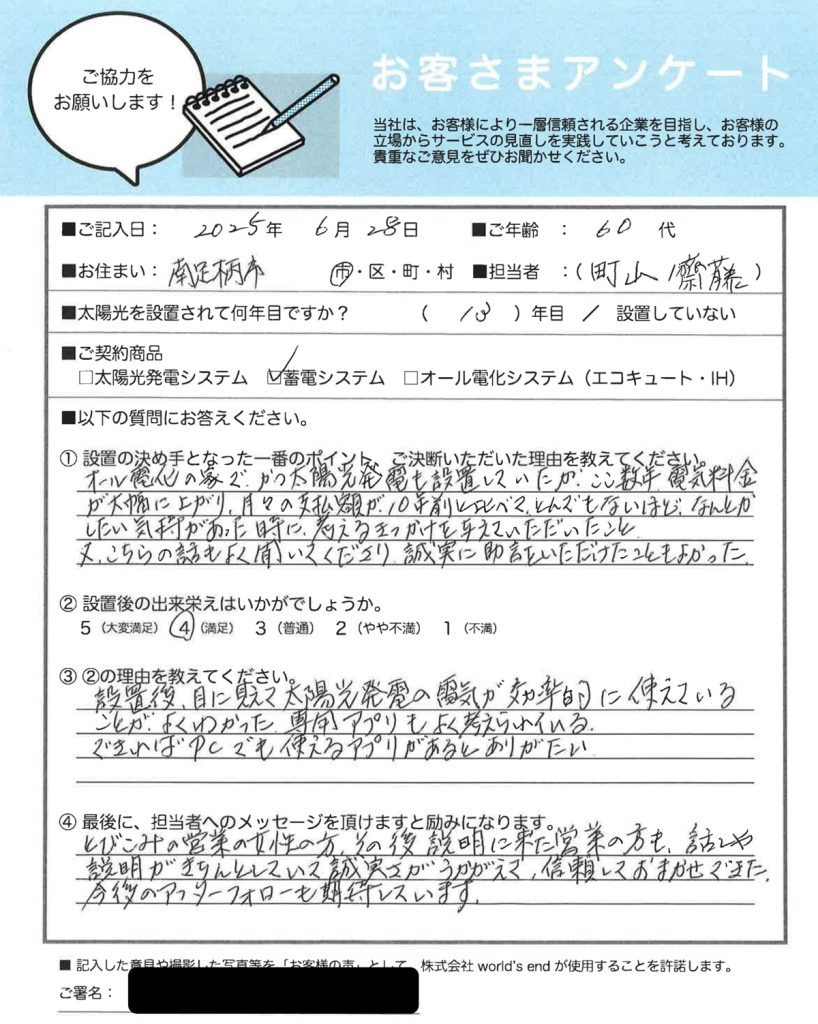 ご協力を
お願いします!
お客さまアンケート
当社は、お客様により一層信頼される企業を目指し、お客様の
立場からサービスの見直しを実践していこうと考えております。
貴重なご意見をぜひお聞かせください。
■ご記入日： 2025年 6月 28日 ■ご年齢 ： 60 代
■お住まい： 南足柄市 市・区・町・村 ■担当者 ：(町山/齋藤)
■太陽光を設置されて何年目ですか？ （ 13 ）年目 / 設置していない
■ご契約商品
□太陽光発電システム ☑蓄電システム □オール電化システム（エコキュート・IH）
■以下の質問にお答えください。
① 設置の決め手となった一番のポイント、ご決断いただいた理由を教えてください。
オール電化の家で、かつ太陽光発電も設置していたが、ここ数年電気料金
が大幅に上がり、月々の支払額が、10年前と比べて、とんでもないほど、なんとか
したい気持があった時に、考えるきっかけを与えていただいたこと
又、こちらの話もよく聞いてくださり、誠実に助言をいただけたこともよかった。
② 設置後の出来栄えはいかがでしょうか。
5（大変満足） 4（満足） 3（普通） 2（やや不満） 1（不満）
③ ②の理由を教えてください。
設置後、目に見えて太陽光発電の電気が効率的に使えている
ことが、よくわかった。専用アプリもよく考えられている。
できればPCでも使えるアプリがあるとありがたい
④ 最後に、担当者へのメッセージを頂けますと励みになります。
とびこみの営業の女性の方、その後説明に来た営業の方も、話しや
説明がきちんとしていて誠実さがうかがえて、信頼しておまかせできた。
今後のアフターフォローも期待しています。
■ 記入した意見や撮影した写真等を「お客様の声」として、株式会社 world's end が使用することを許諾します。
ご署名：